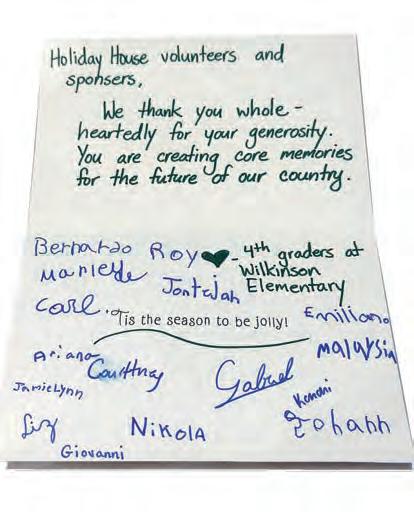 Holiday House volunteers and
sponsers,
We thank you whole-
heartedly for your generosity.
You are creating core memories
for the future of our country.
Bernardo Roy ♥ - 4th graders at
Wilkinson
Elementary
Marielde
Jontajah
Carl
'Tis the season to be jolly!
Emiliano
Ariana
Courtney
Gabriel
Malaysia
JamieLynn
Kenani
Liz
NiKOlA
Johann
Giovanni